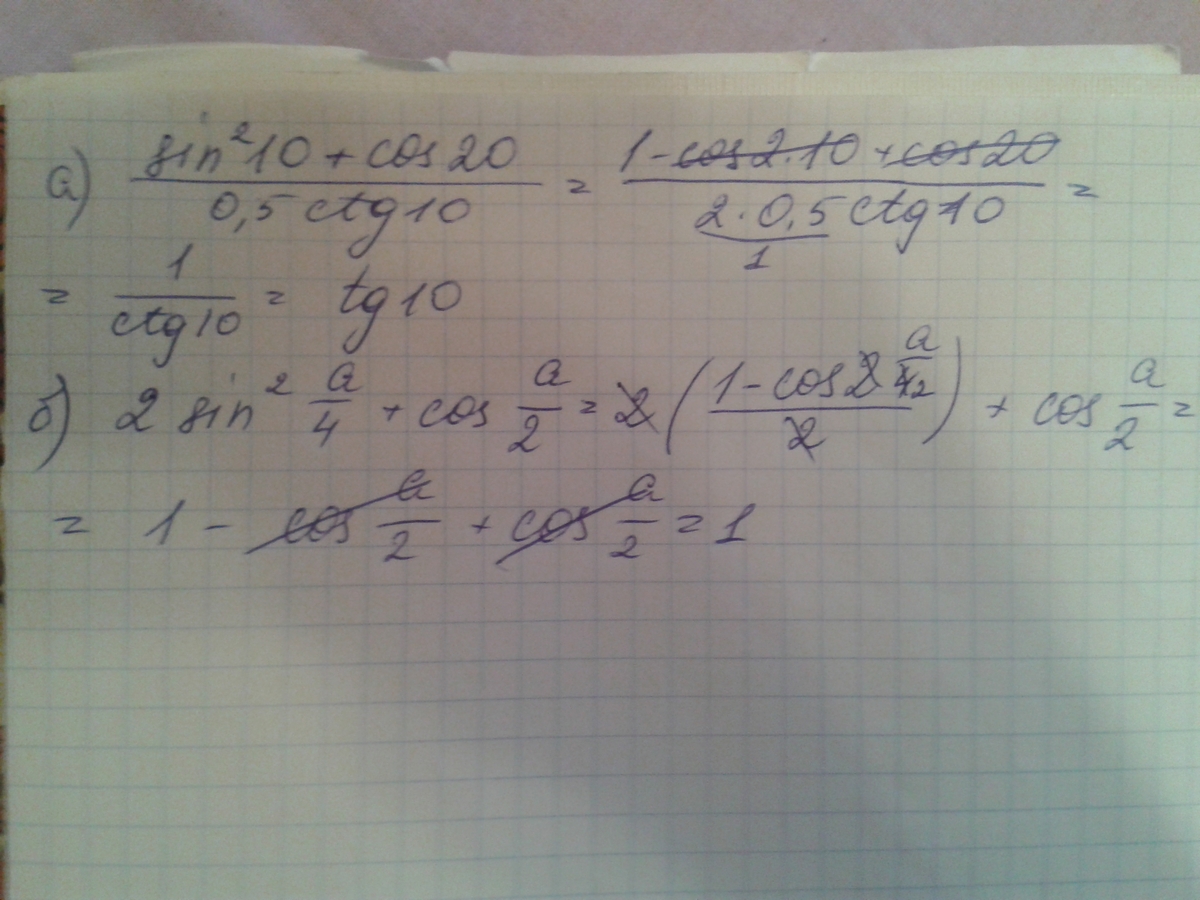 а) (sin²10 + cos20)/(0,5 ctg10) = (1 - cos2·10 + cos20)/(2·0,5 ctg10) =
1
= 1/(ctg10) = tg10
б) 2 sin² a/4 + cos a/2 = 2((1 - cos2 a/4 2)/2) + cos a/2 =
= 1 - cos a/2 + cos a/2 = 1